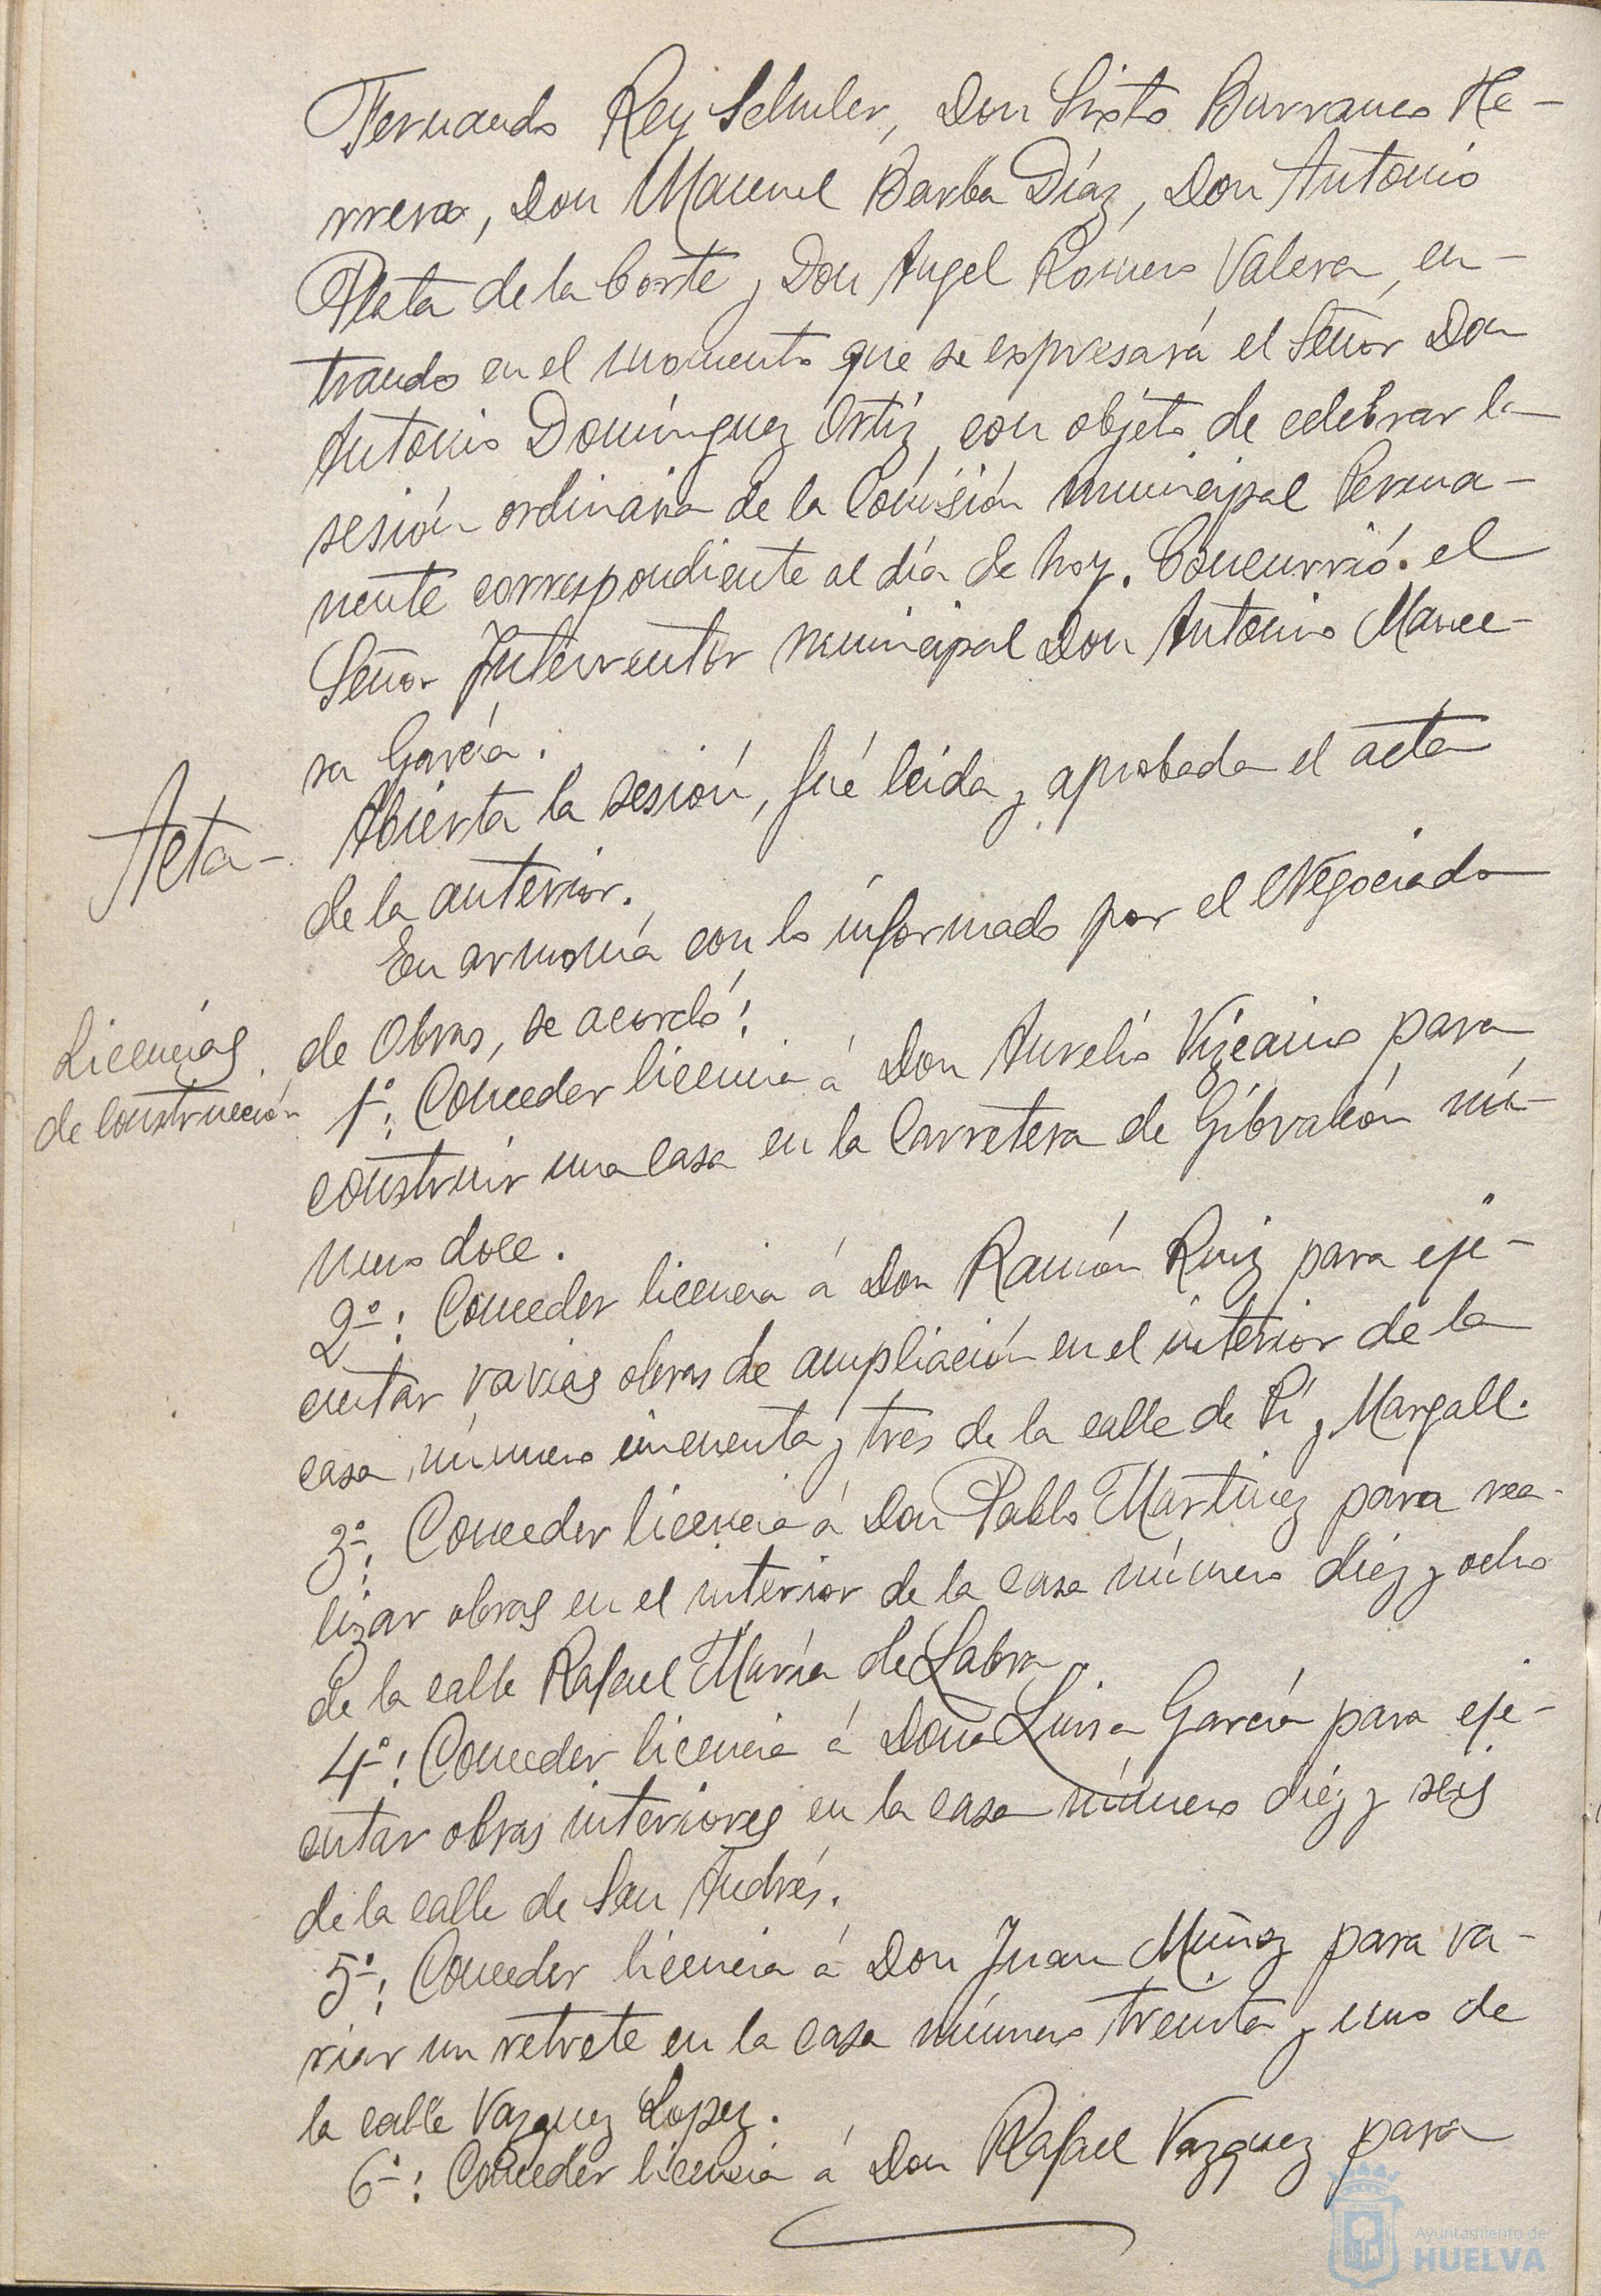 Fernando Rey Schuler, Don Sixto Barranco He-
rrera, Don Manuel Barba Díaz, Don Antonio
Plata de la Corte y Don Angel Romero Valera, en-
trando en el momento que se expresará el Señor Don
Antonio Domínguez Ortiz, con objeto de celebrar la
sesión ordinaria de la Comisión municipal Perma-
nente correspondiente al día de hoy. Concurrió el
Señor Interventor municipal Don Antonio
ra García.
Acta-
Abierta la sesión, fué leida y aprobada el acta
de la anterior.
En armonía con lo informado por el Negociado
Licencias
de construcción
de Obras, se acordó:
1º: Conceder licencia á Don Aurelio Vizcaino para
construir una casa en la Carretera de Gibraleón nú-
mero doce.
2º: Conceder licencia á Don Ramón Ruiz para eje-
cutar varias obras de ampliación en el interior de la
casa número cincuenta y tres de la calle de Pí y Margall.
3º: Conceder licencia á Don Pablo Martinez para rea-
lizar obras en el interior de la casa número diéz y ocho
de la calle Rafael María de Labra.
4º: Conceder licencia á Doña Luisa García para eje-
cutar obras interiores en la casa número diéz y seis
de la calle de San Andrés.
5º: Conceder licencia á Don Juan Muñoz para va-
riar un retrete en la casa número treinta y uno de
la calle Vazquez Lopez.
6º: Conceder licencia á Don Rafael Vazquez para
Ayuntamiento de
HUELVA